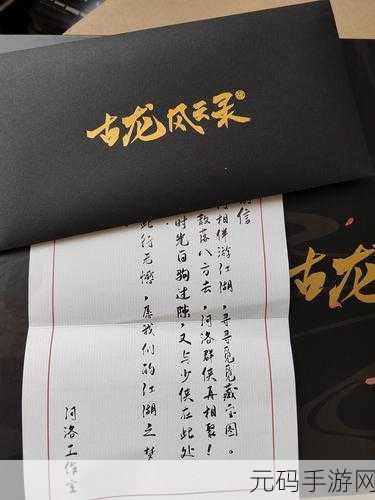 古龙风云录
信
相伴游江湖，寻寻觅觅藏宝图。
散落八方去，河洛群侠再相聚！
时光白驹过隙，又与少侠在此处
此行无憾，我们的江湖之梦
河洛工作室
古龙
元码手游网